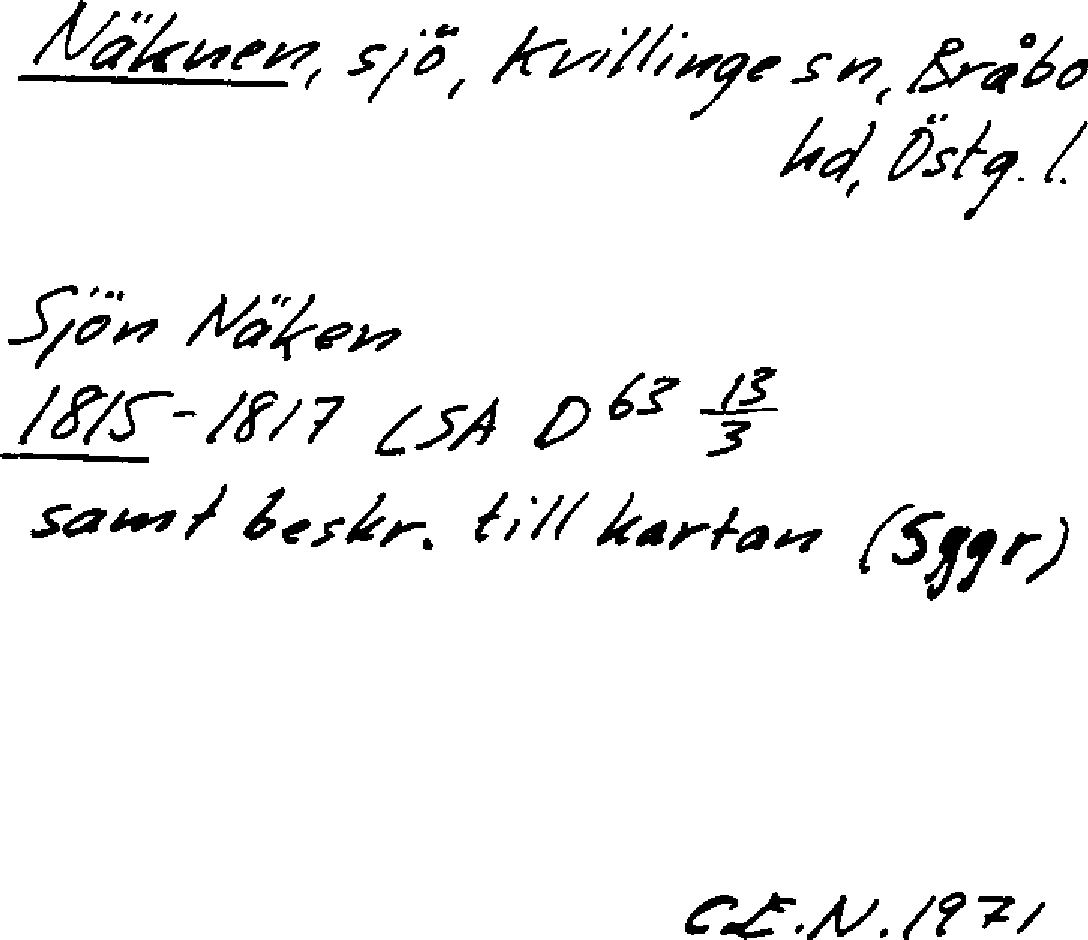 Näknen, sjö, Kvillinge sn, Bråbo
hd, Östg. l.
Sjön Näken
1815-1817 LSA D 63 13/3
samt beskr. till kartan (5ggr)
C.E.N. 1971